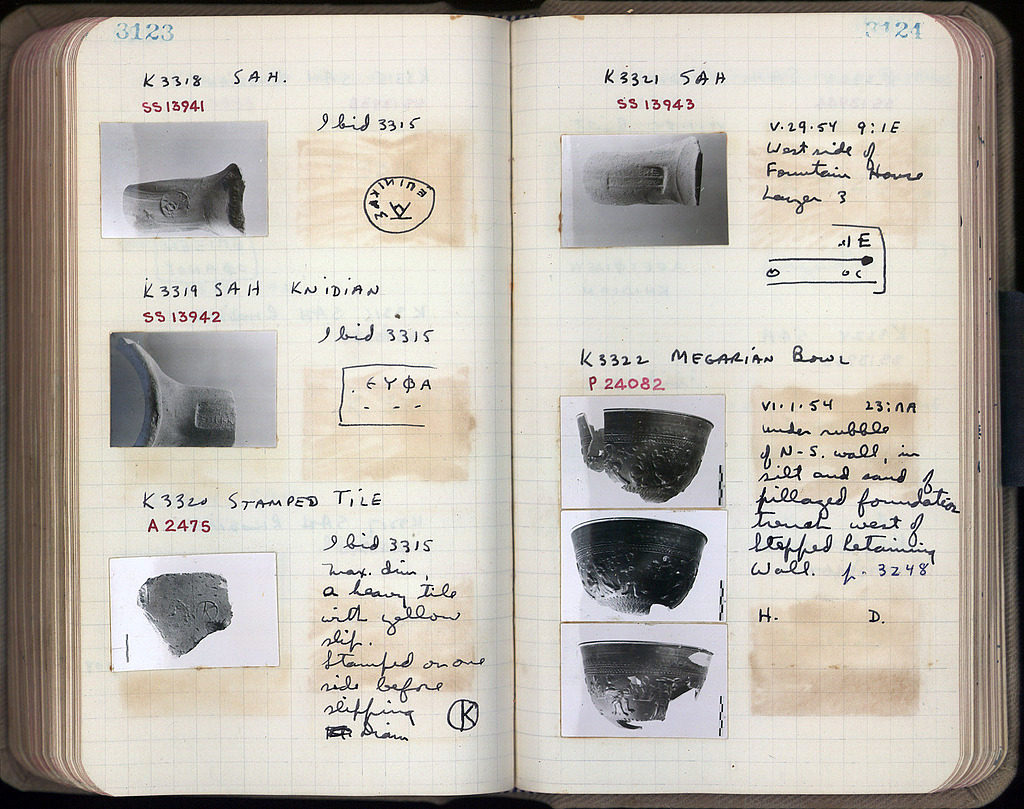 3123
K3318 SAH.
SS 13941
Ibid 3315
ΕΠΙΝΙΚΑΣ
K3319 SAH KNIDIAN
SS 13942
Ibid 3315
. ЄΥΦΑ
. - - -
K3320 STAMPED TILE
A 2475
Ibid 3315
Max. dim,
a heavy tile
with yellow
slip.
Stamped on one
side before
slipping
Diam
K
3124
K3321 SAH
SS 13943
V.29.54 9:IE
West side of
Fountain House
Layer 3
.IE
K3322 MEGARIAN BOWL
P 24082
VI.1.54 23:ΠΑ
under rubble
of N-S. wall, in
silt and sand of
pillaged foundation
trench west of
Stepped Retaining
Wall. p. 3248
H. D.